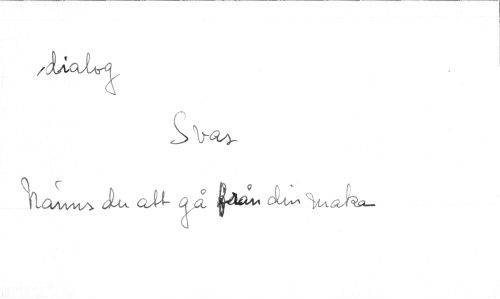 dialog
Svar
Nänns du att gå från din maka